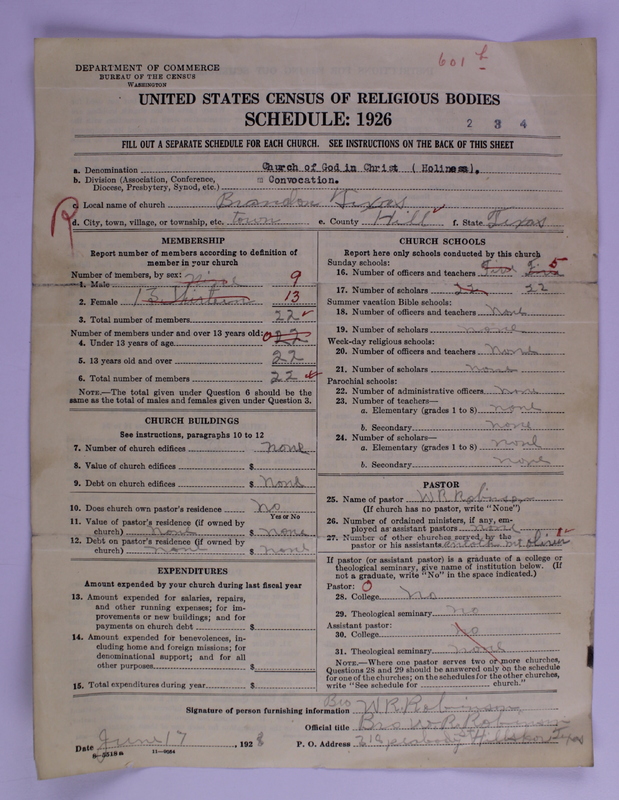 601
DEPARTMENT OF COMMERCE
BUREAU OF THE CENSUS
WASHINGTON
UNITED STATES CENSUS OF RELIGIOUS BODIES
SCHEDULE: 1926
2 3 4
FILL OUT A SEPARATE SCHEDULE FOR EACH CHURCH. SEE INSTRUCTIONS ON THE BACK OF THIS SHEET
a. Denomination Church of God in Christ ( Holiness).
b. Division (Association, Conference, Diocese, Presbytery, Synod, etc.) Convocation.
c. Local name of church Brandon Texas
R
d. City, town, village, or township, etc. town e. County Hill f. State Texas
MEMBERSHIP
Report number of members according to definition of
member in your church
Number of members, by sex:
1. Male Nine 9
2. Female 13 thirteen 13
3. Total number of members 22
Number of members under and over 13 years old:
4. Under 13 years of age 0 22
5. 13 years old and over 22
6. Total number of members 22
NOTE.—The total given under Question 6 should be the
same as the total of males and females given under Question 3.
CHURCH BUILDINGS
See instructions, paragraphs 10 to 12
7. Number of church edifices none
8. Value of church edifices $
9. Debt on church edifices $ None
10. Does church own pastor's residence No
Yes or No
11. Value of pastor's residence (if owned by
church) None $ None
12. Debt on pastor's residence (if owned by
church) None $ None
EXPENDITURES
Amount expended by your church during last fiscal year
13. Amount expended for salaries, repairs,
and other running expenses; for im-
provements or new buildings; and for
payments on church debt $
14. Amount expended for benevolences, in-
cluding home and foreign missions; for
denominational support; and for all
other purposes $
15. Total expenditures during year $
CHURCH SCHOOLS
Report here only schools conducted by this church
Sunday schools:
16. Number of officers and teachers Five Five 5
17. Number of scholars 22 22
Summer vacation Bible schools:
18. Number of officers and teachers None
19. Number of scholars none
Week-day religious schools:
20. Number of officers and teachers None
21. Number of scholars none
Parochial schools:
22. Number of administrative officers none
23. Number of teachers—
a. Elementary (grades 1 to 8) none
b. Secondary none
24. Number of scholars—
a. Elementary (grades 1 to 8) none
b. Secondary none
PASTOR
25. Name of pastor W R Robinson
(If church has no pastor, write "None")
26. Number of ordained ministers, if any, em-
ployed as assistant pastors none
27. Number of other churches served by the
pastor or his assistants antioch mt oliver 2
If pastor (or assistant pastor) is a graduate of a college or
theological seminary, give name of institution below. (If
not a graduate, write "No" in the space indicated.)
Pastor: 0
28. College No
29. Theological seminary no
Assistant pastor:
30. College No
31. Theological seminary none
NOTE.—Where one pastor serves two or more churches,
Questions 28 and 29 should be answered only on the schedule
for one of the churches; on the schedules for the other churches,
write "See schedule for church."
Signature of person furnishing information Bro W R Robinson
Official title Bro W. R. Robinson
Date June 17, 1928 P. O. Address 219 peabody Hillsboro Texas
8-5518a 11-9084